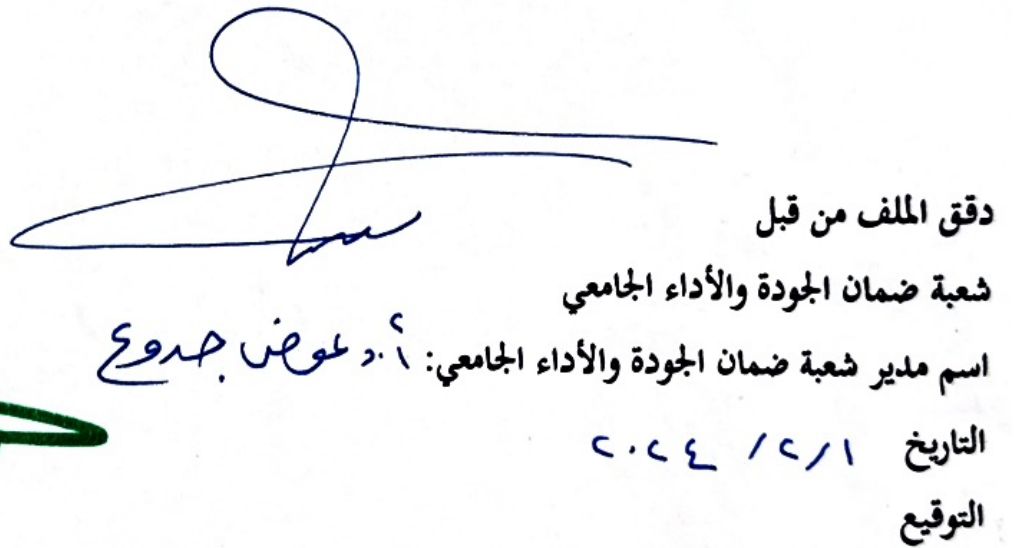 دقق الملف من قبل
شعبة ضمان الجودة والأداء الجامعي
اسم مدير شعبة ضمان الجودة والأداء الجامعي: أ.د عوض جدوع
التاريخ ٢٠٢٤ /٢/١
التوقيع